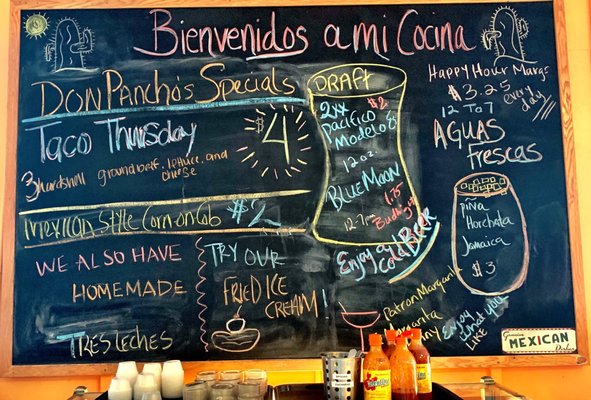 Bienvenidos a mi Cocina
Don Pancho's Specials
Taco Thursday
$4
3 hardshell ground beef, lettuce, and
cheese
Mexican Style Corn on Cob $2
WE ALSO HAVE
HOMEMADE
TRES LECHES
TRY OUR
FRIED ICE
CREAM!
DRAFT
2xx $2
Pacifico
Modelo &
12 oz.
BLUE MOON
12-7pm
Enjoy a
Cold Beer
Happy Hour Margs
$3.25
every day
12 To 7
AGUAS
Frescas
Piña
Horchata
Jamaica
$3
Patron Margarita
Margarita
Enjoy
what you
LIKE
Genuine
MEXICAN
Dishes